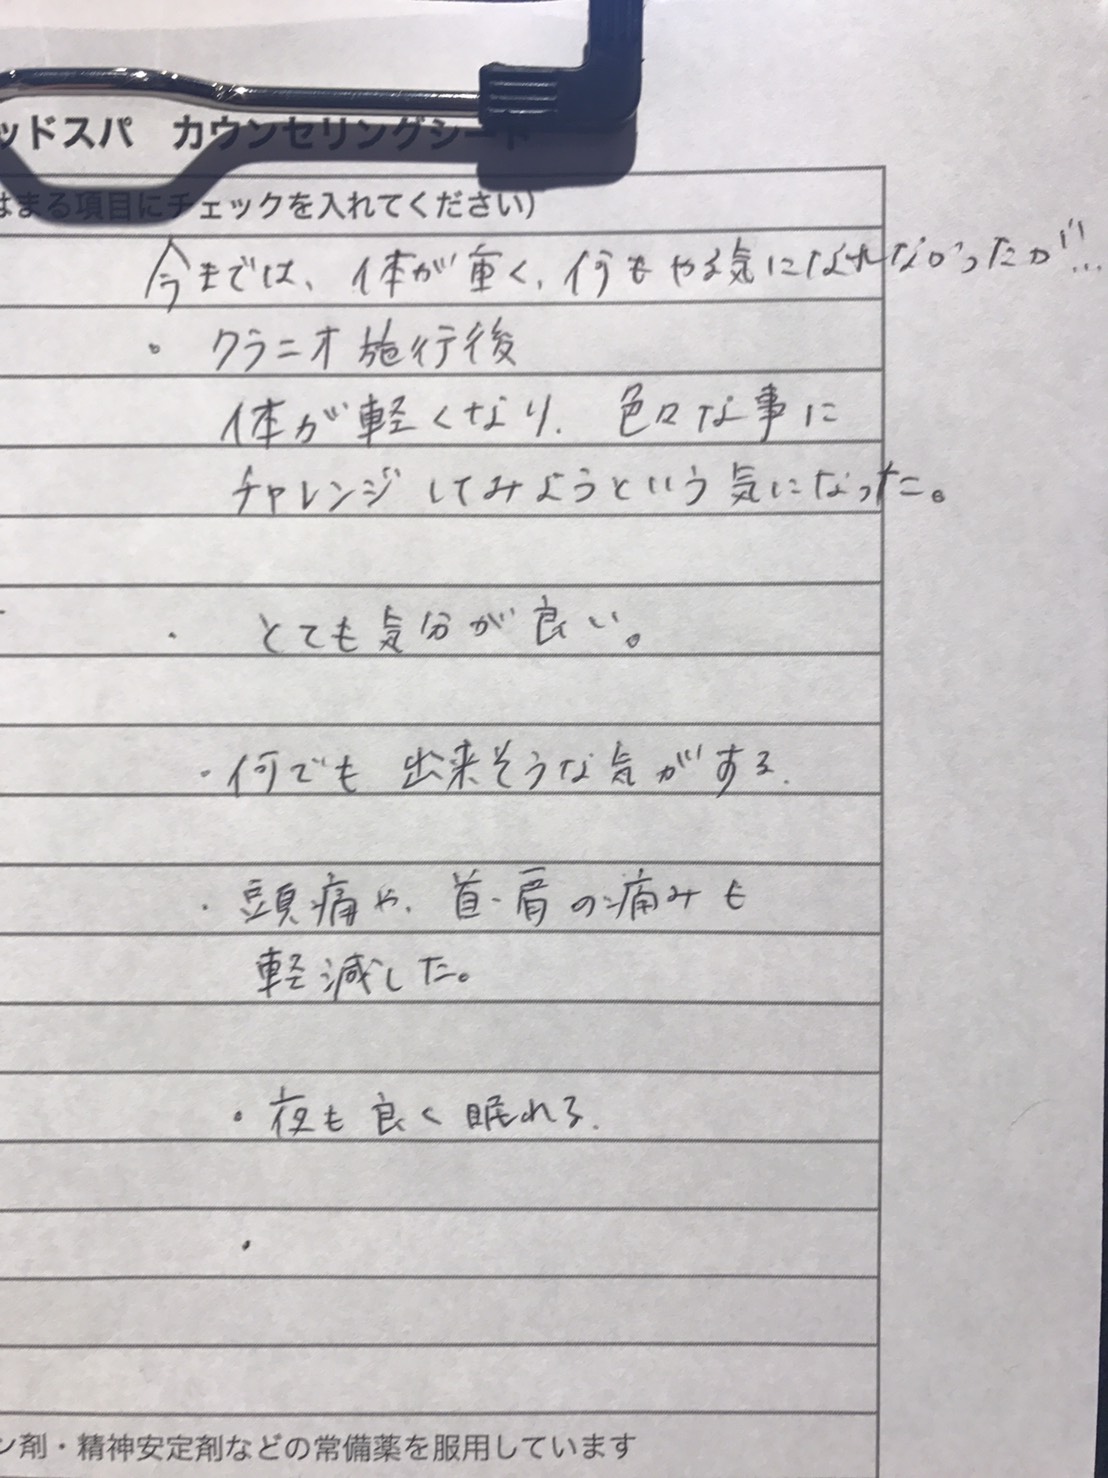 ッドスパ カウンセリングシート
はまる項目にチェックを入れてください)
今までは、体が重く、何もやる気になれなかったが…
・クラニオ施行後
体が軽くなり、色々な事に
チャレンジしてみようという気になった。
・とても気分が良い。
・何でも出来そうな気がする.
・頭痛や、首・肩の痛みも
軽減した。
・夜も良く眠れる.
・
ン剤・精神安定剤などの常備薬を服用しています